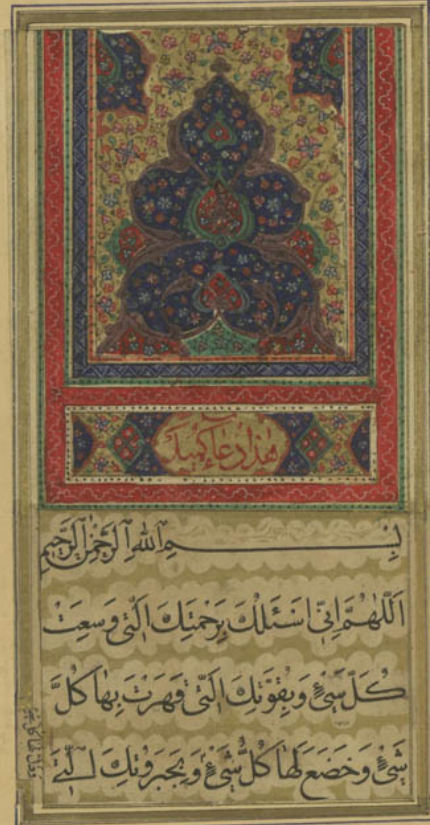 هٰذا دُعاءِ كُمَيْل
بِسْمِ اللهِ الرَّحْمٰنِ الرَّحِيمِ
اَللّٰهُمَّ اِنّى اَسْئَلُكَ بِرَحْمَتِكَ الَّتى وَسِعَتْ
كُلَّ شَىْءٍ وَبِقُوَّتِكَ الَّتى قَهَرْتَ بِها كُلَّ
شَىْءٍ وَخَضَعَ لَها كُلُّ شَىْءٍ وَبِجَبَرُوتِكَ الَّتى